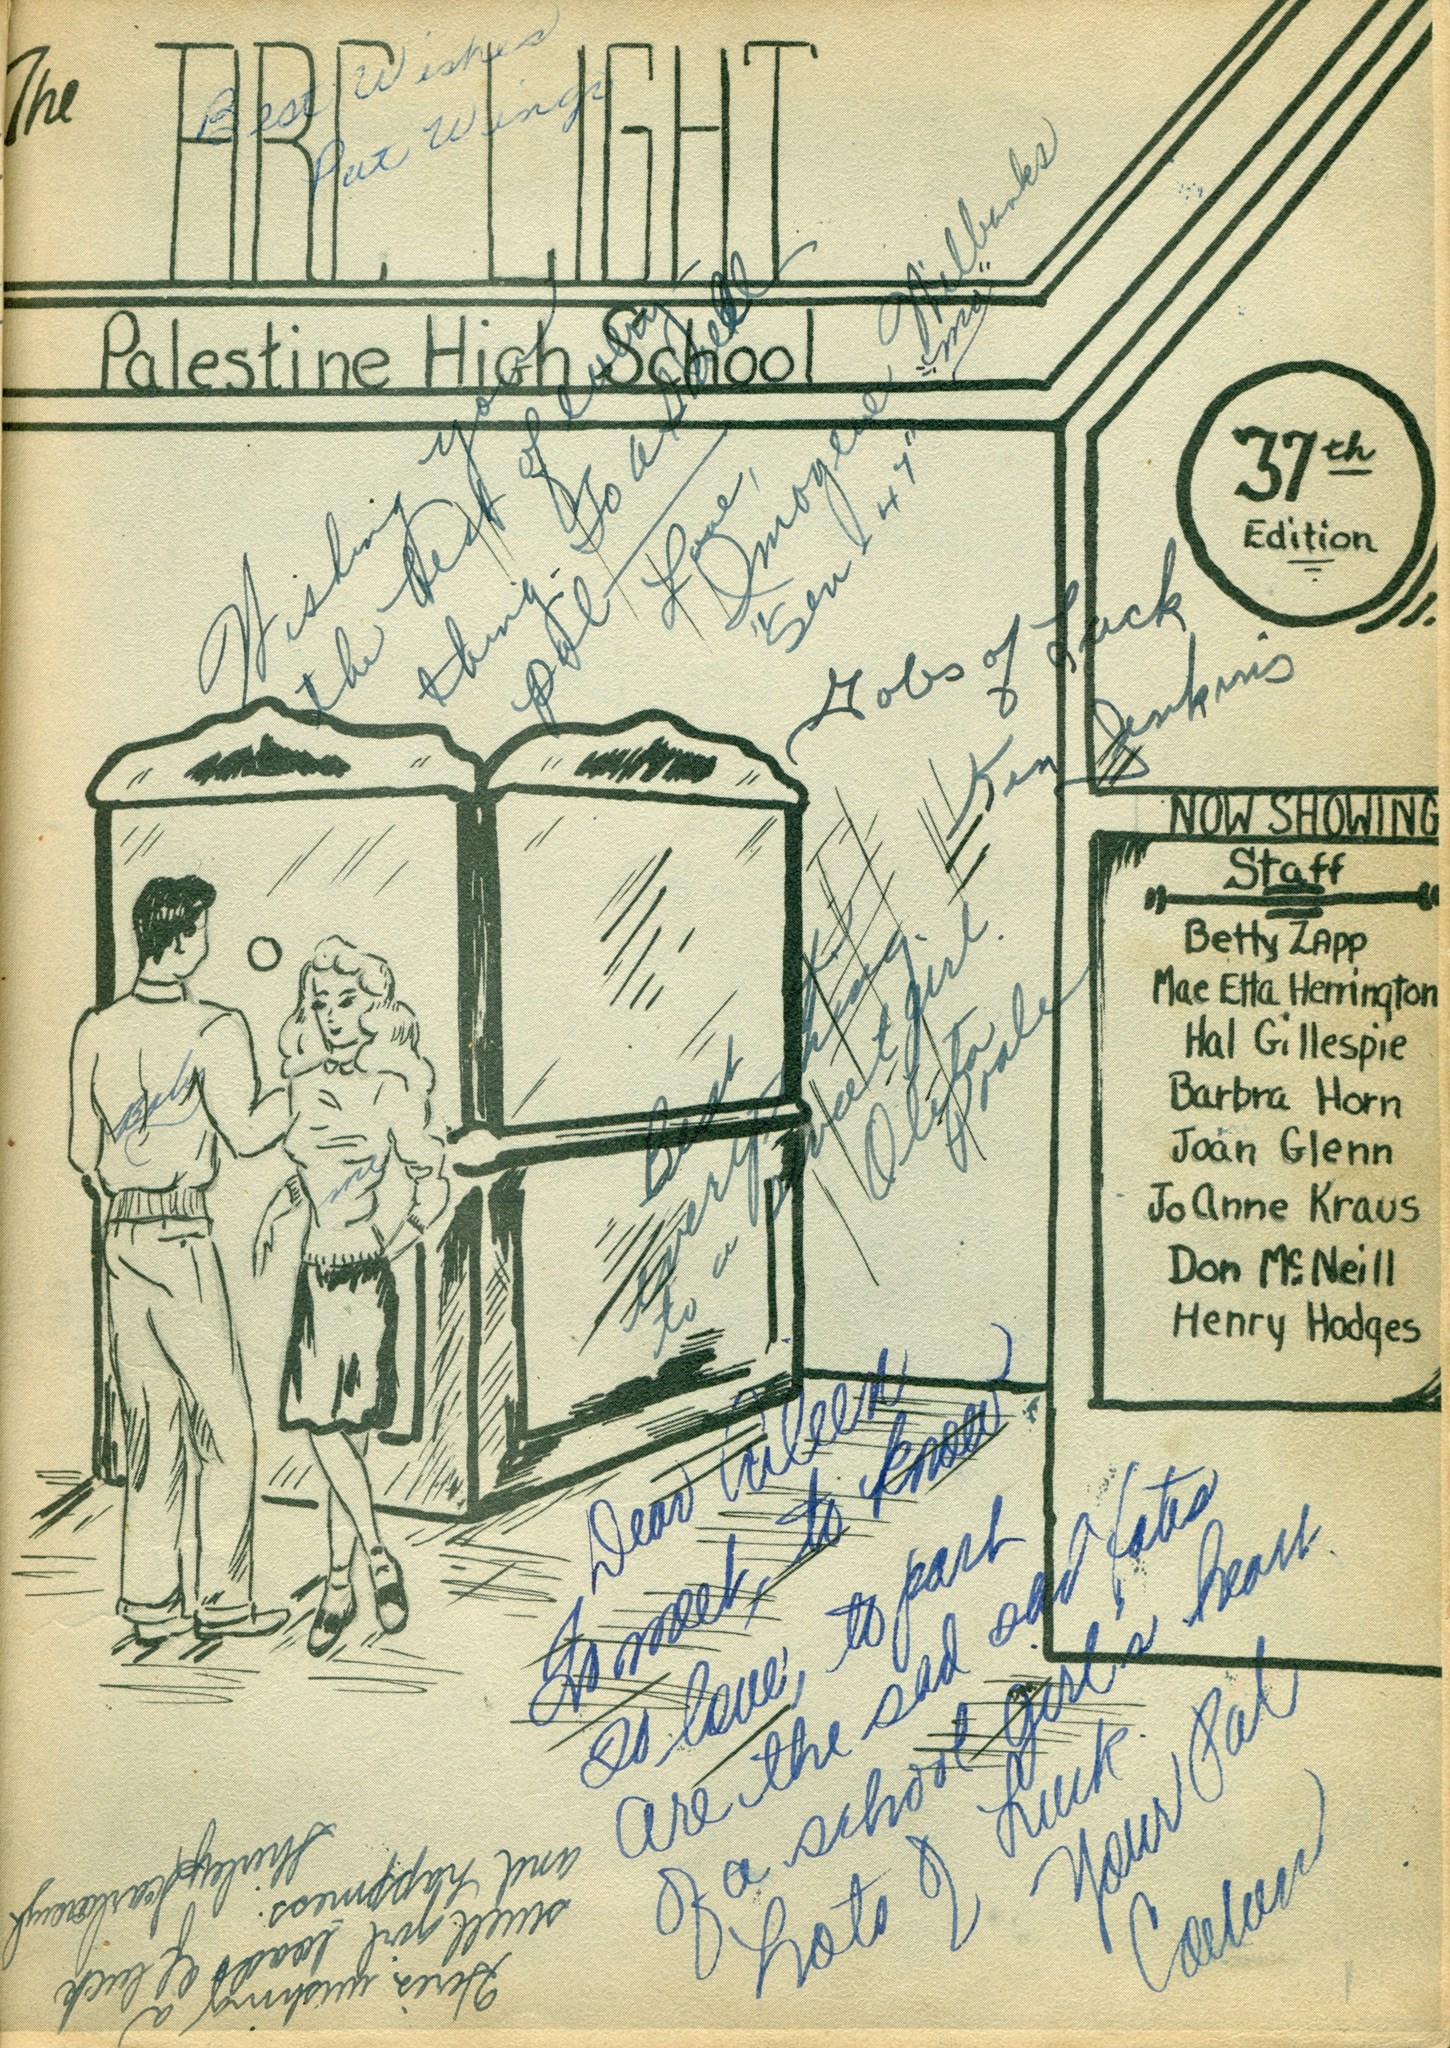 The ARC LIGHT
Best Wishes
Pat Wings
Palestine High School
Wishing you
the best of every
thing. To a swell
pal
Love,
Imogene Wilbanks
"Sen - 47"
"ma"
37th
Edition
Gobs of Luck
Ken Jenkins
NOW SHOWING
Staff
Betty ZApp
Mae Etta Herrington
Hal Gillespie
Barbra Horn
Joan Glenn
Jo Anne Kraus
Don McNeill
Henry Hodges
Best of
everything
to a sweet girl.
me
Dear Aileen
To meet, to know
to love, to part
are the sad sad fates
of a school girl's heart.
Lots of Luck.
Your Pal
Here's wishing a
swell girl loads of luck
and happiness.
Shirley Scarborough